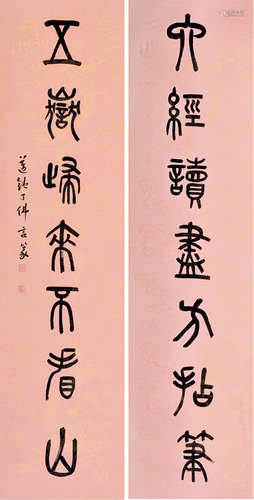 六經讀盡方拈筆
五嶽歸來不看山
邁鈍丁佛言篆